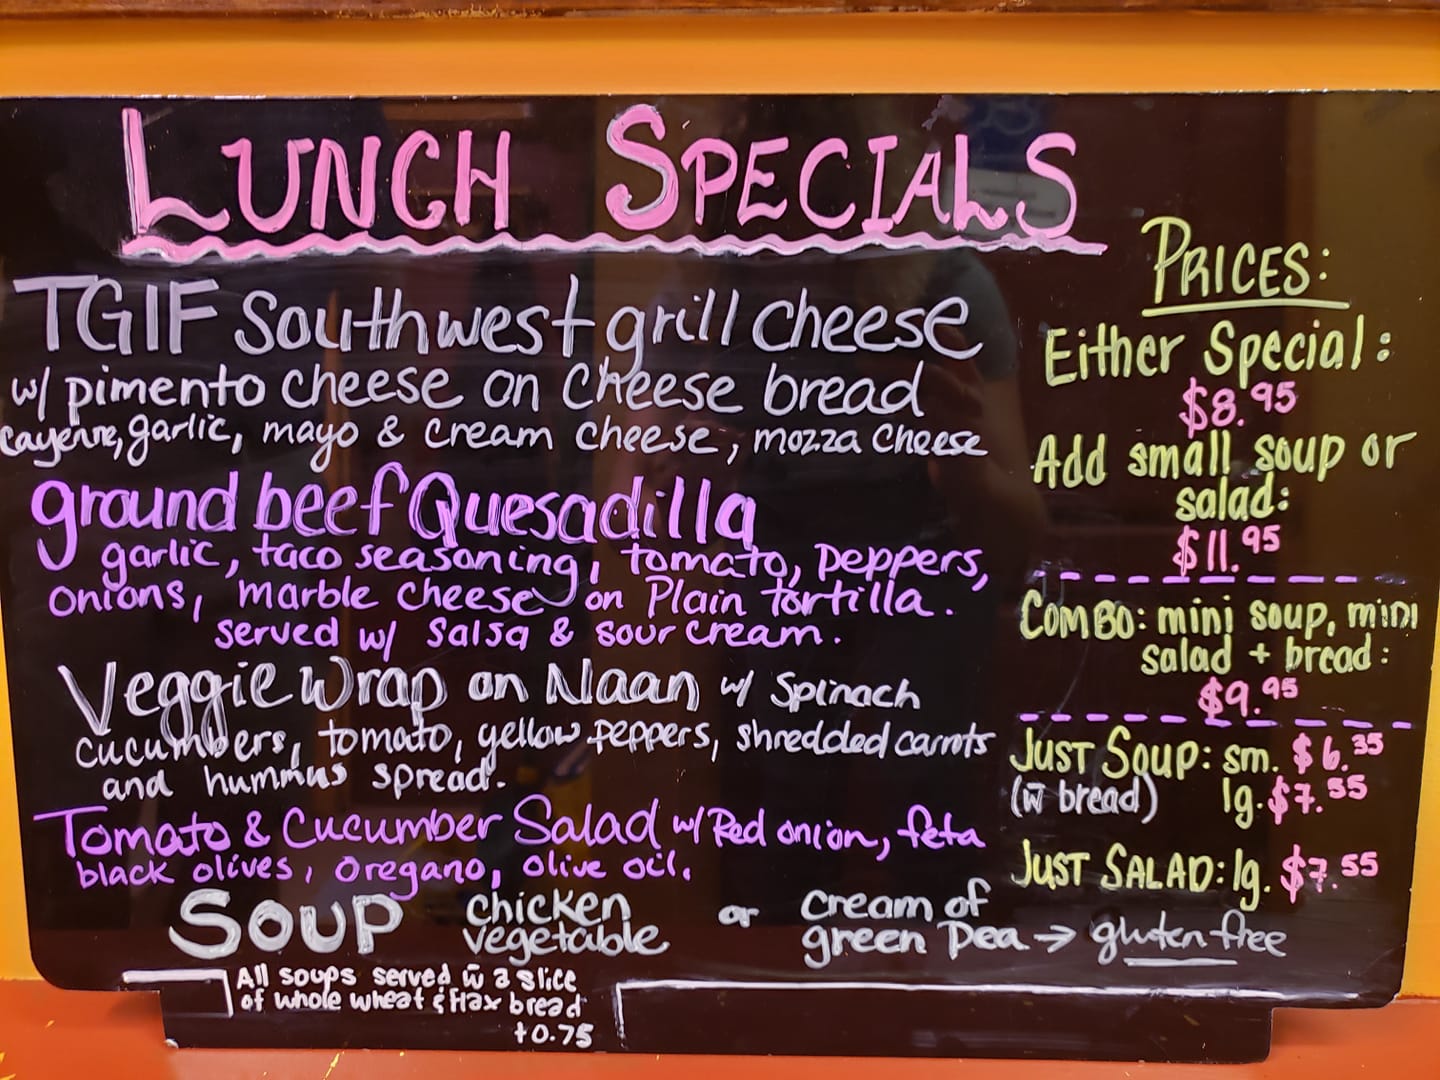 LUNCH SPECIALS
TGIF Southwest grill cheese
w/ pimento cheese on cheese bread
cayenne, garlic, mayo & cream cheese, mozza cheese
ground beef Quesadilla
garlic, taco seasoning, tomato, peppers,
onions, marble cheese on Plain tortilla.
served w/ Salsa & sour cream.
Veggie Wrap on Naan w/ Spinach
cucumbers, tomato, yellow peppers, shredded carrots
and hummus spread.
Tomato & Cucumber Salad w/ Red onion, feta
black olives, oregano, olive oil.
SOUP chicken or cream of
vegetable green pea → gluten free
All soups served w̄ a slice
of whole wheat & flax bread
+0.75
PRICES:
Either Special:
$8.95
Add small soup or
salad:
$11.95
COMBO: mini soup, mini
salad + bread:
$9.95
JUST SOUP: sm. $6.35
(w̄ bread) lg. $7.55
JUST SALAD: lg. $7.55